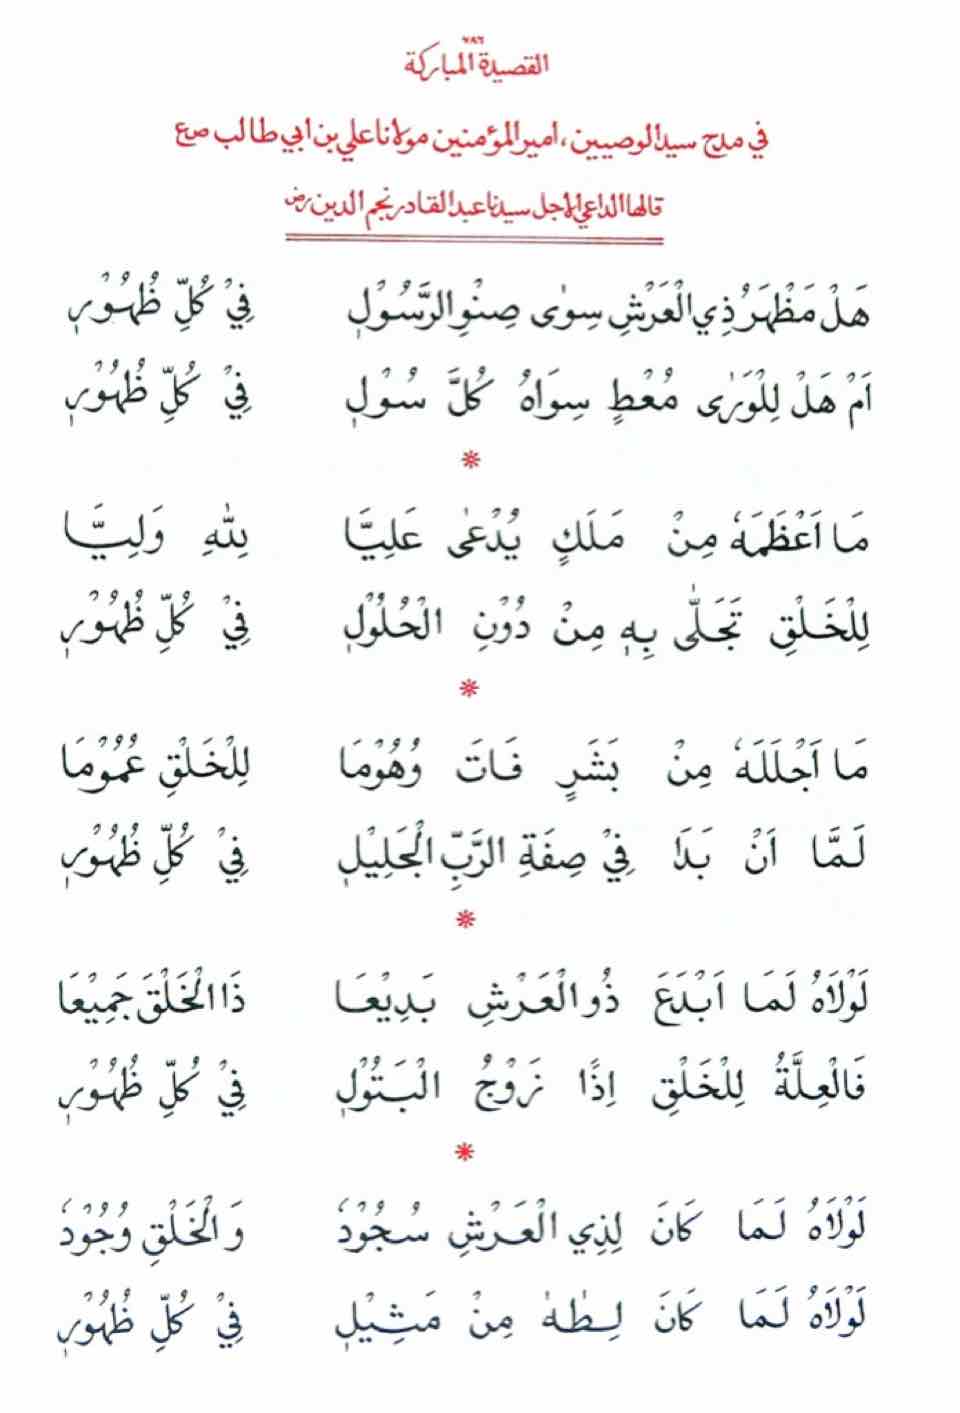 ٧٨٦
القصيدة المباركة
في مدح سيد الوصيين، امير المؤمنين مولانا علي بن ابي طالب صع
قالها الداعي الاجل سيدنا عبد القادر نجم الدين رض
هَلْ مَظْهَرُ ذِي الْعَرْشِ سِوٰى صِنْوِ الرَّسُوْلِ فِيْ كُلِّ ظُهُوْرٖ
اَمْ هَلْ لِلْوَرٰى مُعْطٍ سِوَاهُ كُلَّ سُوْلٖ فِيْ كُلِّ ظُهُوْرٖ
مَا اَعْظَمَهٗ مِنْ مَلَكٍ يُدْعٰى عَلِيَّا لِلّٰهِ وَلِيَّا
لِلْخَلْقِ تَجَلّٰى بِهٖ مِنْ دُوْنِ الْحُلُوْلِ فِيْ كُلِّ ظُهُوْرٖ
مَا اَجْلَلَهٗ مِنْ بَشَرٍ فَاتَ وُهُوْمَا لِلْخَلْقِ عُمُوْمَا
لَمَّا اَنْ بَدَا فِيْ صِفَةِ الرَّبِّ الْجَلِيْلِ فِيْ كُلِّ ظُهُوْرٖ
لَوْلَاهُ لَمَا اَبْدَعَ ذُو الْعَرْشِ بَدِيْعَا ذَا الْخَلْقَ جَمِيْعَا
فَالْعِلَّةُ لِلْخَلْقِ اِذًا زَوْجُ الْبَتُوْلِ فِيْ كُلِّ ظُهُوْرٖ
لَوْلَاهُ لَمَا كَانَ لِذِي الْعَرْشِ سُجُوْدٗ وَالْخَلْقِ وُجُوْدٗ
لَوْلَاهُ لَمَا كَانَ لِطٰهٰ مِنْ مَثِيْلٖ فِيْ كُلِّ ظُهُوْرٖ